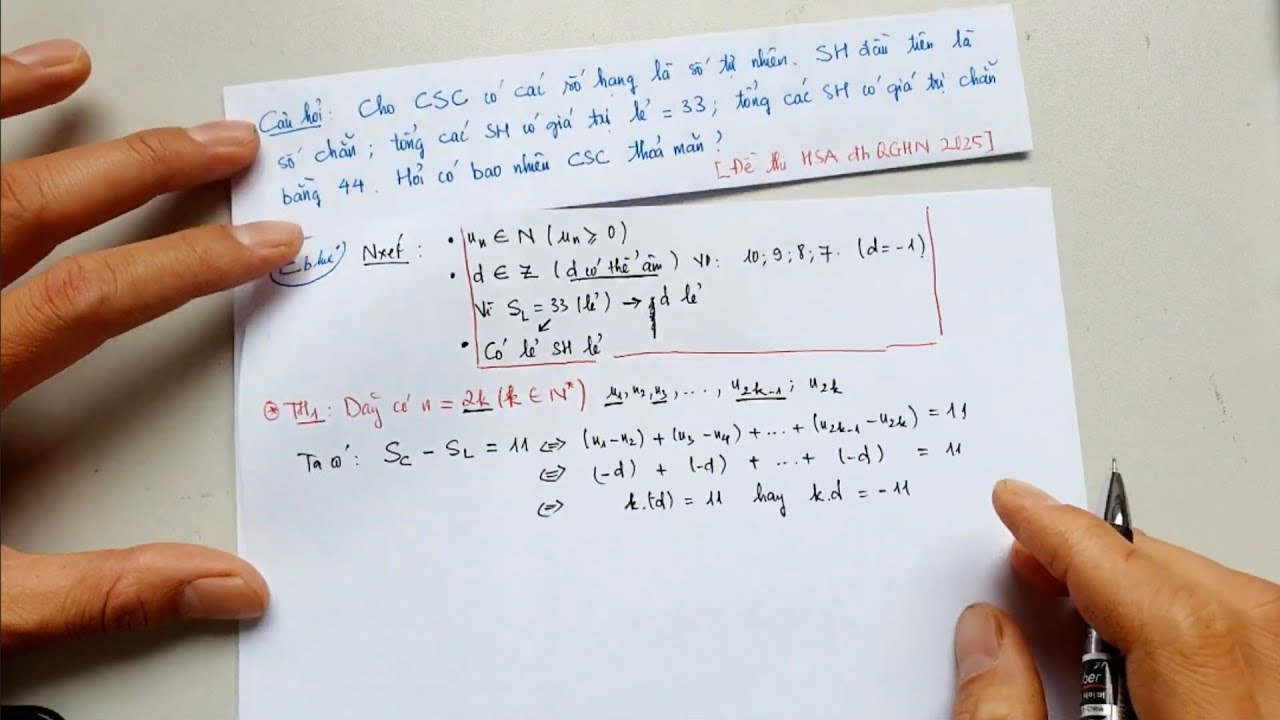 Câu hỏi: Cho CSC có các số hạng là số tự nhiên. SH đầu tiên là
số chẵn; tổng các SH có giá trị lẻ = 33; tổng các SH có giá trị chẵn
bằng 44. Hỏi có bao nhiêu CSC thoả mãn?
[Đề thi HSA đh QGHN 2025]
Nxét: • uₙ ∈ N (uₙ ⩾ 0)
• d ∈ Z (d có thể âm) VD: 10; 9; 8; 7. (d = -1)
Vì S_L = 33 (lẻ) → d lẻ
↙
• Có lẻ SH lẻ
⊛ TH₁: Dãy có n = 2k (k ∈ N*) u₁, u₂, u₃, ..., u₂ₖ₋₁; u₂ₖ
Ta có: S_C - S_L = 11 ⇔ (u₁-u₂) + (u₃-u₄) + ... + (u₂ₖ₋₁-u₂ₖ) = 11
⇔ (-d) + (-d) + ... + (-d) = 11
⇔ k.(d) = 11 hay k.d = -11